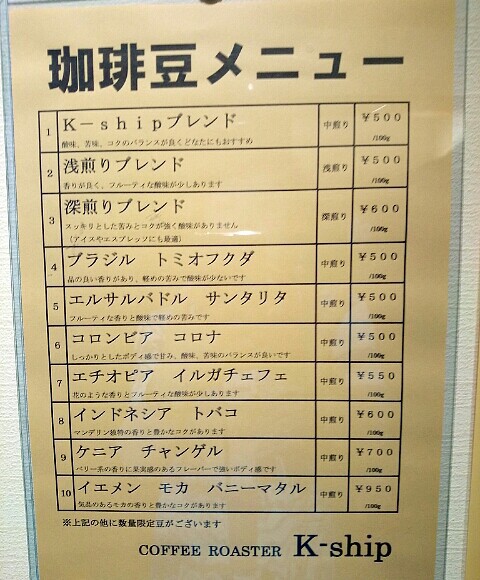 珈琲豆メニュー
1 K－shipブレンド 中煎り ￥500
酸味、苦味、コクのバランスが良くどなたにもおすすめ /100g
2 浅煎りブレンド 浅煎り ￥500
香りが良く、フルーティな酸味が少しあります /100g
3 深煎りブレンド 深煎り ￥600
スッキリとした苦みとコクが強く酸味がありません /100g
（アイスやエスプレッソにも最適）
4 ブラジル トミオフクダ 中煎り ￥500
品の良い香りがあり、軽めの苦みで酸味が少ないです /100g
5 エルサルバドル サンタリタ 中煎り ￥500
フルーティな香りと酸味で軽めの苦みです /100g
6 コロンビア コロナ 中煎り ￥500
しっかりとしたボディ感で甘み、酸味、苦味のバランスが良いです /100g
7 エチオピア イルガチェフェ 中煎り ￥550
花のような香りとフルーティな酸味が少しあります /100g
8 インドネシア トバコ 中煎り ￥600
マンデリン独特の香りと豊かなコクがあります /100g
9 ケニア チャンゲル 中煎り ￥700
ベリー系の香りに果実感のあるフレーバーで強いボディ感です /100g
10 イエメン モカ バニーマタル 中煎り ￥950
気品めあるモカの香りと豊かなコクがあります /100g
※上記の他に数量限定豆がございます
COFFEE ROASTER K-ship